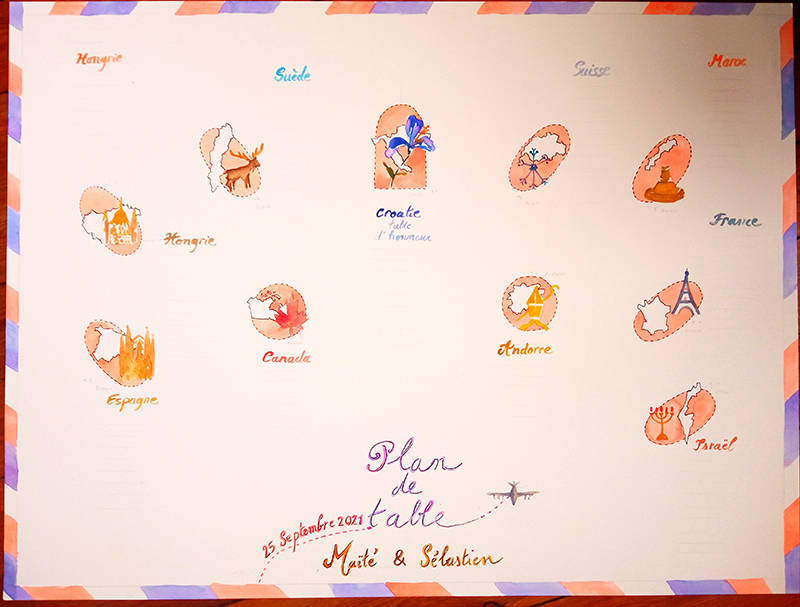 Hongrie
Suède
Suisse
Maroc
Croatie
table
d'honneur
France
Hongrie
Canada
Andorre
Espagne
Israël
Plan
de
table
25 Septembre 2021
Maïté & Sébastien